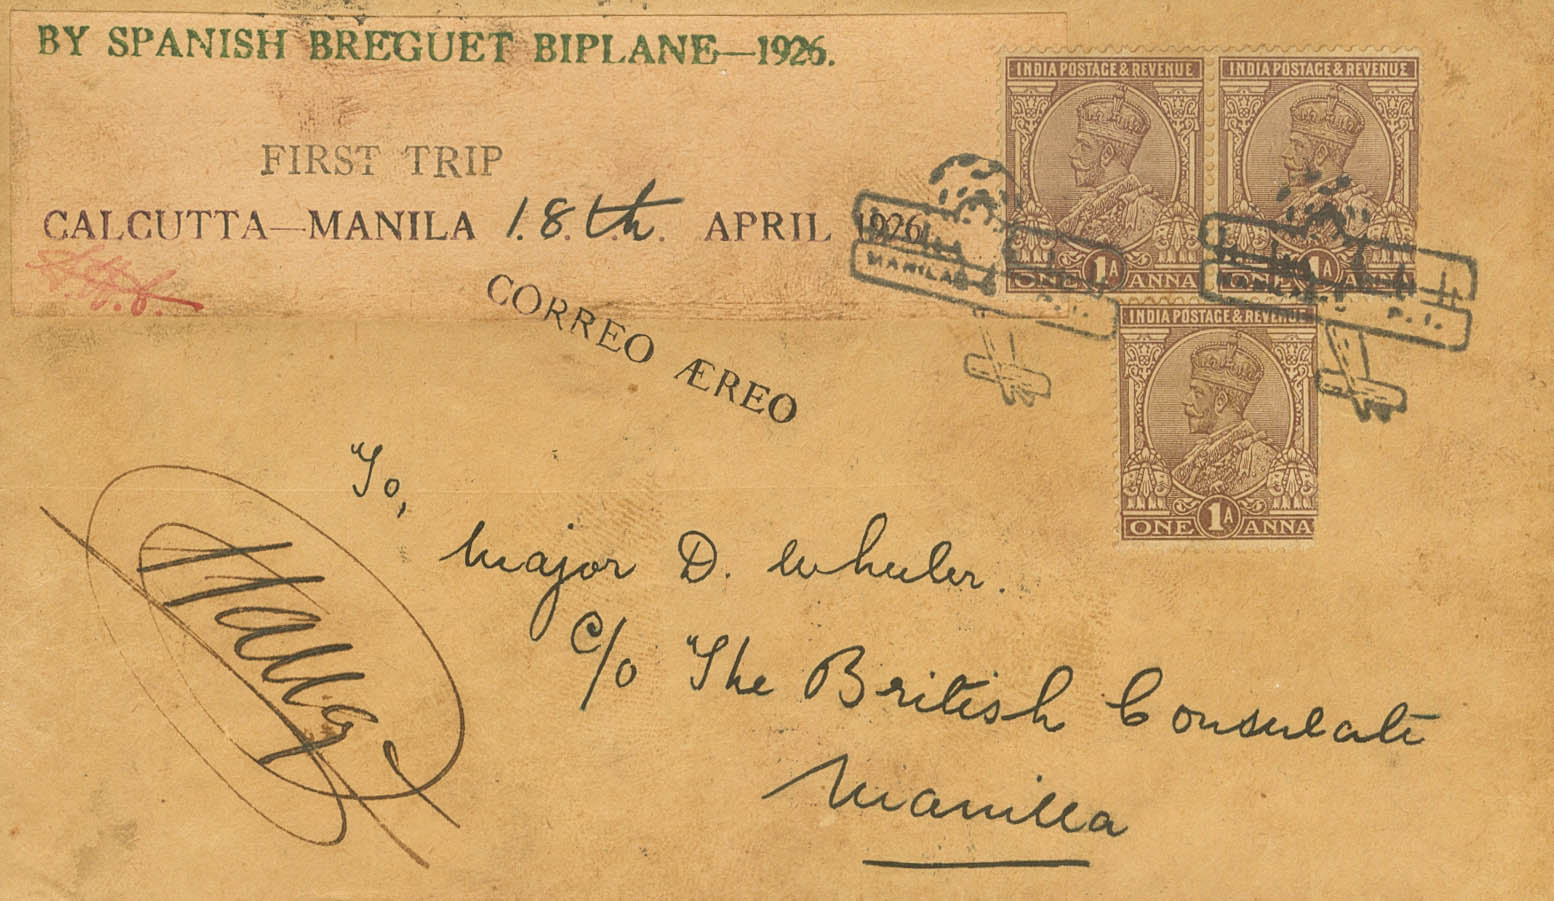 BY SPANISH BREGUET BIPLANE—1926.
FIRST TRIP
CALCUTTA—MANILA 18th APRIL 1926
CORREO ÆREO
INDIA POSTAGE & REVENUE
1A
ONE ANNA
INDIA POSTAGE & REVENUE
1A
ONE ANNA
INDIA POSTAGE & REVENUE
1A
ONE ANNA
MANILA
P. I.
P. I.
To,
Major D. Wheeler.
c/o The British Consulate
Manilla